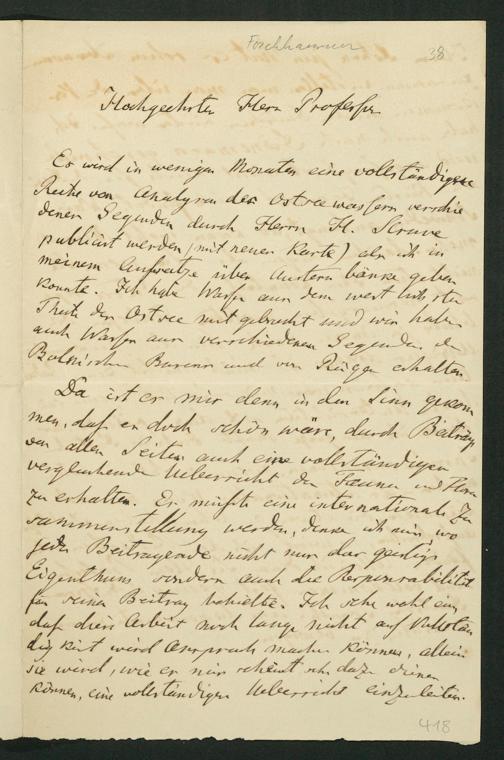 Forchhammer
38
Hochgeehrter Herr Professor
Es wird in wenigen Monaten eine vollständigere
Reihe von Analysen des Ostseewassers verschie
denen Gegenden durch Herrn H. Struve
publicirt werden (mit neuer Karte) als ich in
meinem Aufsatze über Austernbänke geben
konnte. Ich habe Wasser aus dem westlichsten
Theile der Ostsee mitgebracht und wir haben
auch Wasser aus verschiedenen Gegenden des
Botnischen Busens und von Rügen erhalten.
Da ist es mir denn in den Sinn gekom
men, dass es doch schön wäre, durch Beiträge
von allen Seiten auch eine vollständigere
vergleichende Uebersicht der Fauna und Flora
zu erhalten. Es müsste eine internationale Zu
sammenstellung werden, denke ich mir, wo
jeder Beitragende nicht nur das geistige
Eigenthum sondern auch die Responsabilität
für seinen Beitrag behielte. Ich sehe wohl ein,
dass diese Arbeit noch lange nicht auf Vollstän
digkeit wird Anspruch machen können, allein
sie wird, wie es mir scheint sehr dazu dienen
können, eine vollständigere Uebersicht einzuleiten.
418